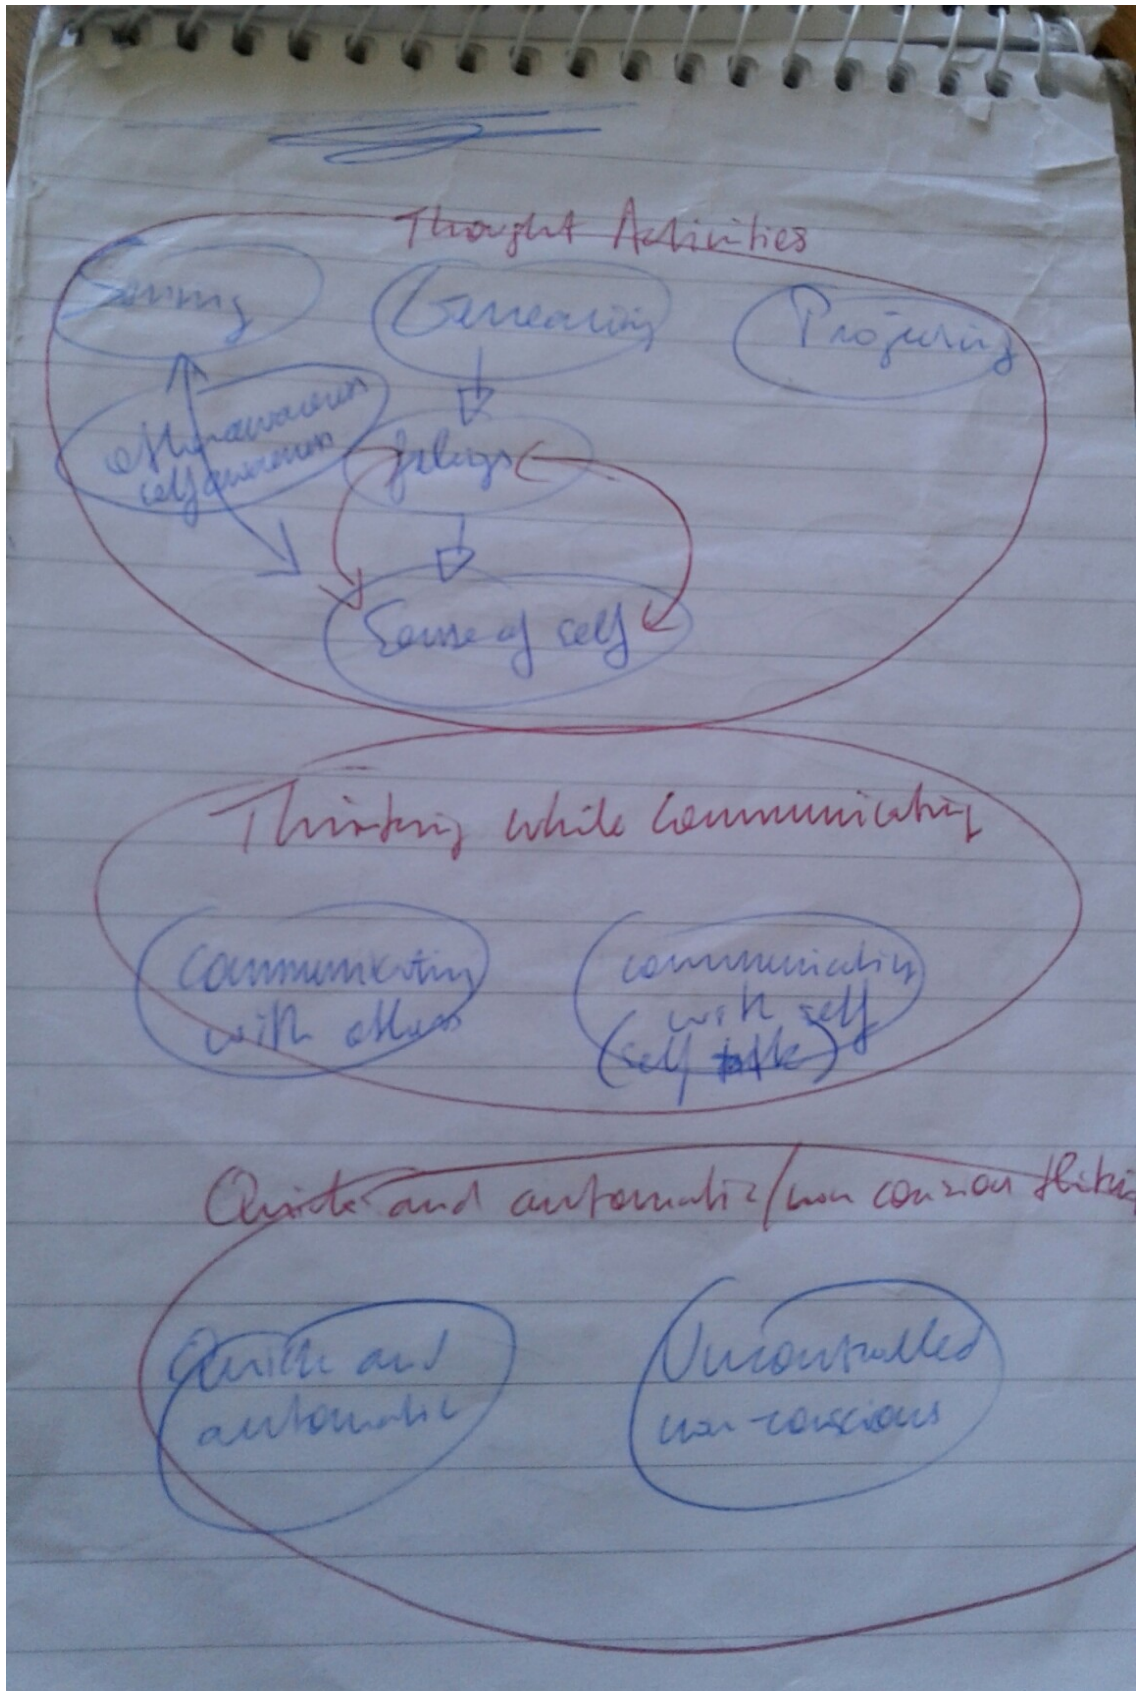 Thought Activities
Sensing
Generating
Projecting
other awareness
self awareness
feelings
Sense of self
Thinking while communicating
communicating
with others
communicating
with self
(self talk)
Quick and automatic/non conscious thinking
Quick and
automatic
Uncontrolled
non-conscious